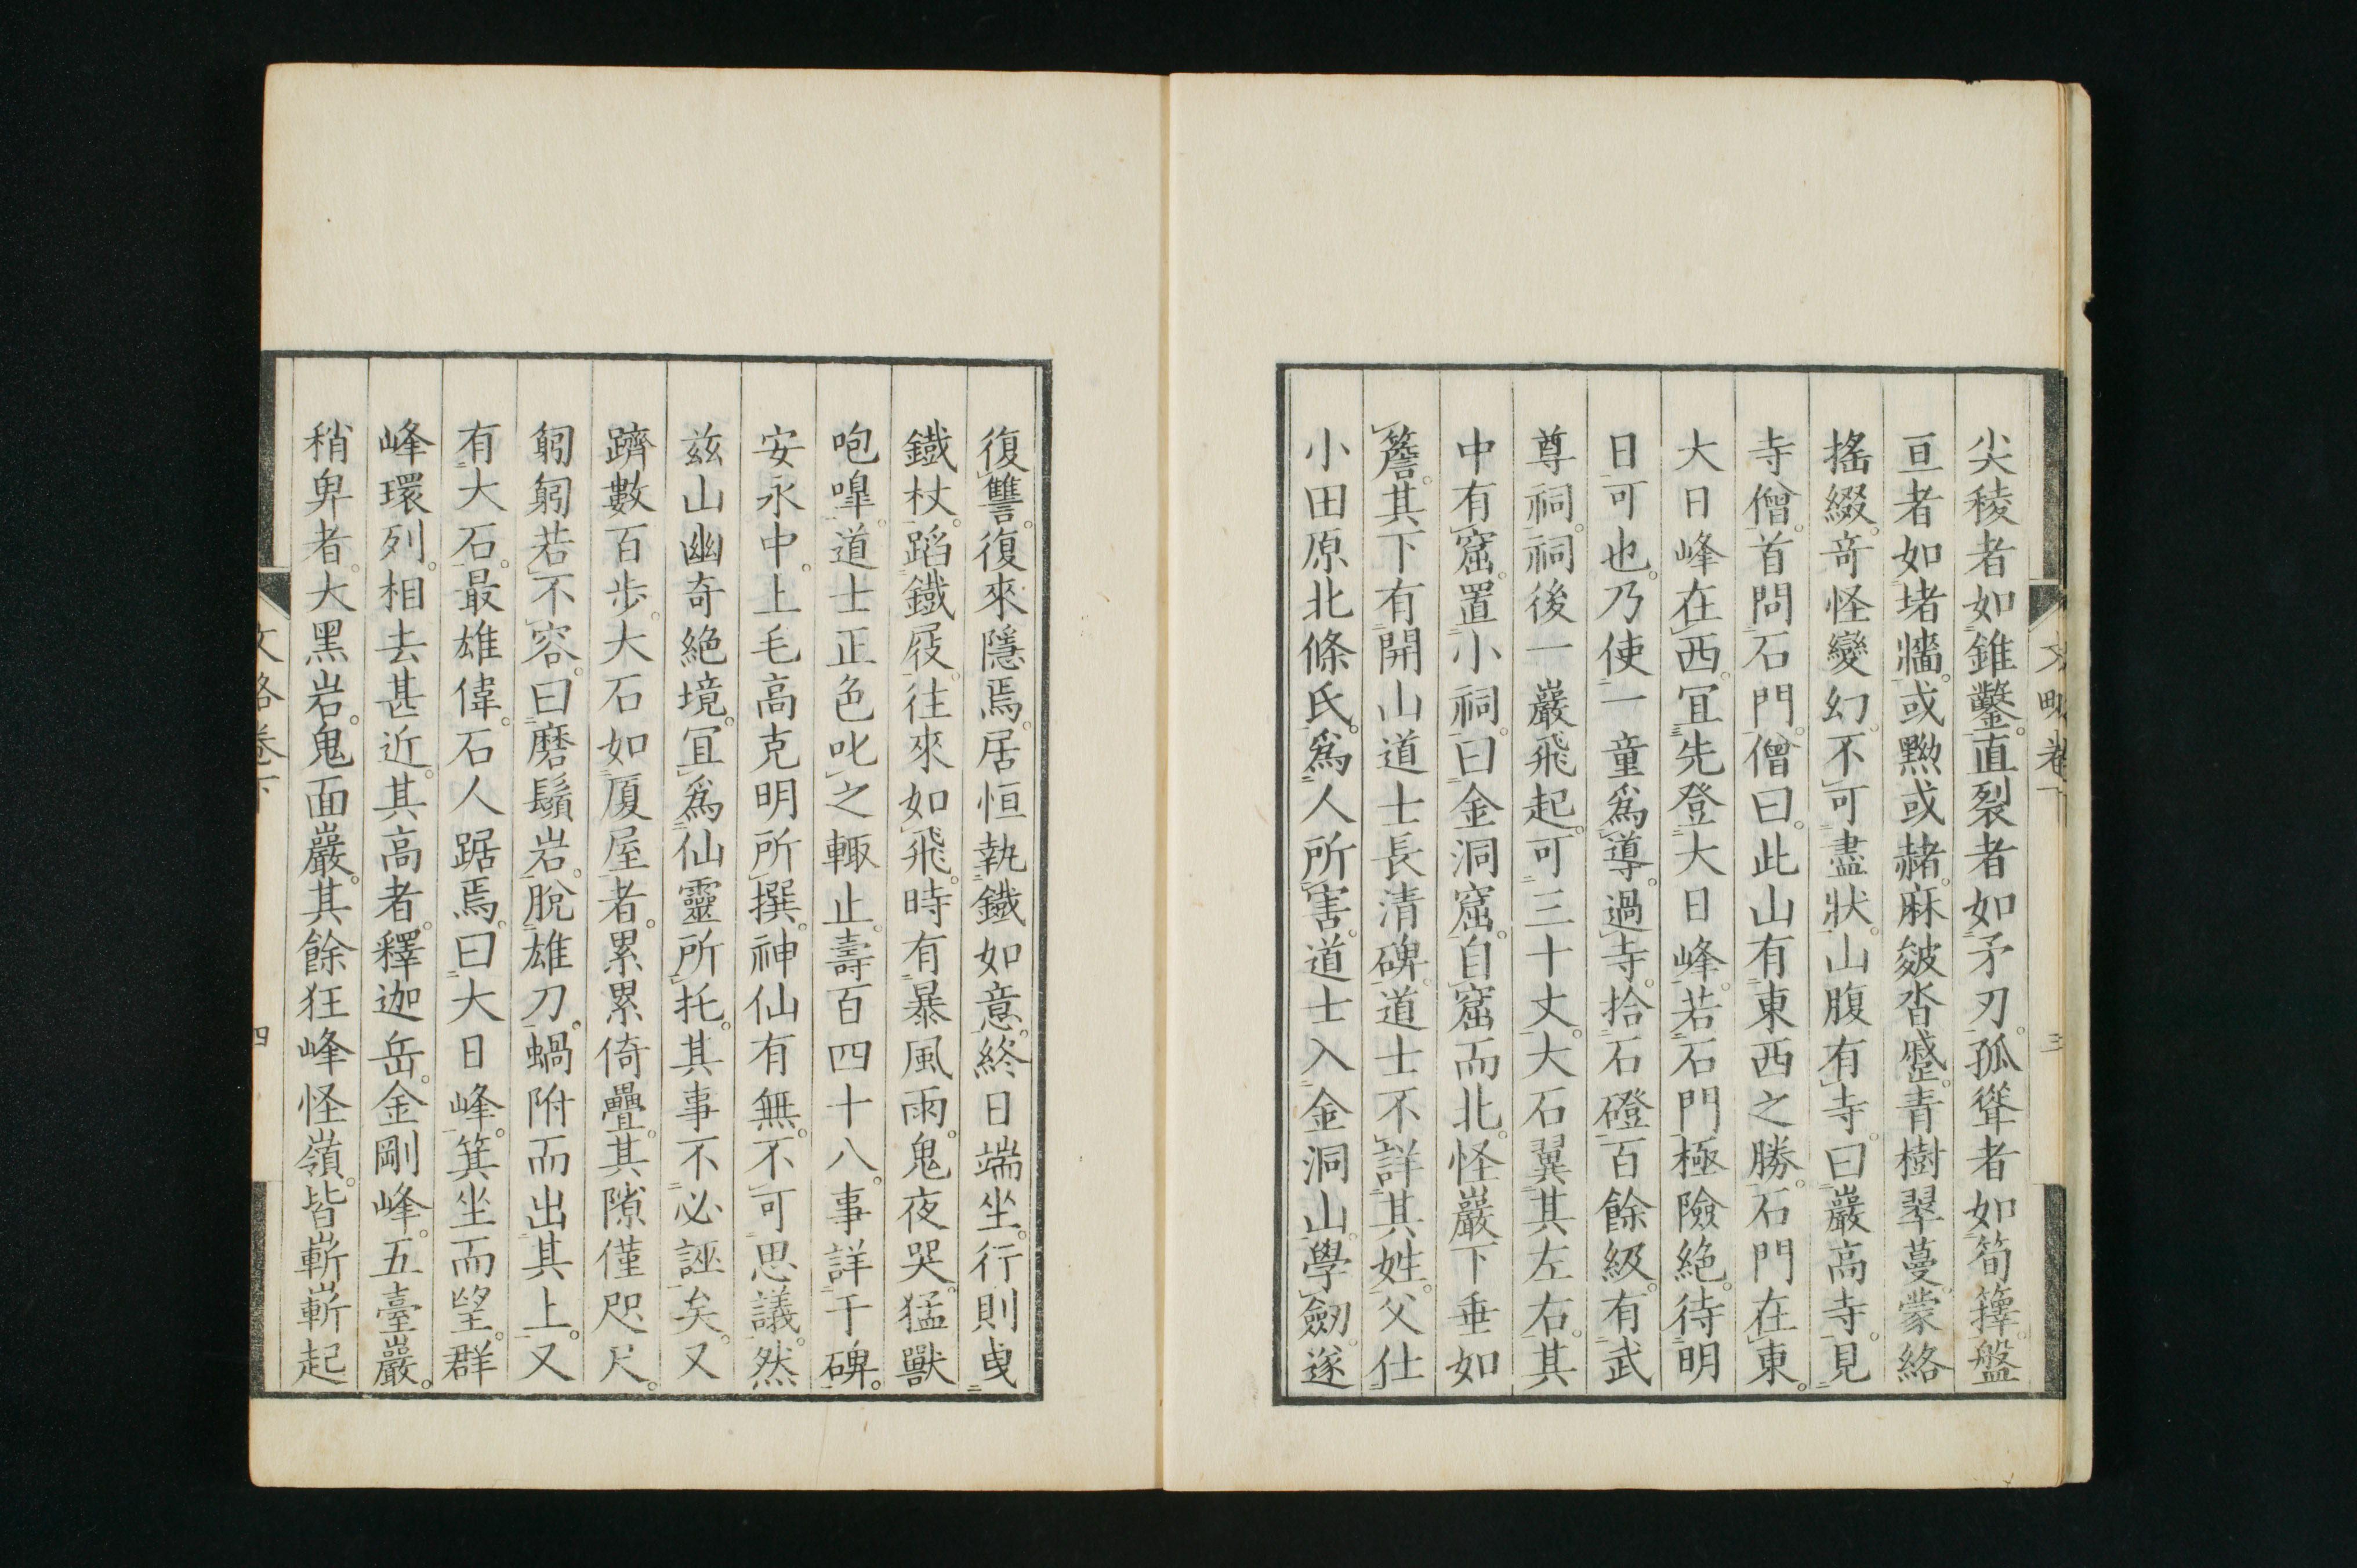 文略卷下
三
尖稜者如錐鑿。直裂者如矛刃。孤聳者如筍籜。盤
亘者如堵墻。或黝或赭。麻皴沓蹙。青樹翠蔓。蒙絡
搖綴。奇怪變幻。不可盡狀。山腹有寺。曰巖高寺。見
寺僧。首問石門。僧曰。此山有東西之勝。石門在東。
大日峰在西。冝先登大日峰。若石門極險絶。待明
日可也。乃使一童爲導。過寺。拾石磴百餘級。有武
尊祠。祠後一巖飛起。可三十丈。大石翼其左右。其
中有窟。置小祠。曰金洞窟。自窟而北。怪巖下垂如
簷。其下有開山道士長清碑。道士不詳其姓。父仕
小田原北條氏。爲人所害。道士入金洞山。學劒。遂
復讐。復來隱焉。居恒執鐵如意。終日端坐。行則曵
鐵杖。蹈鐵屐。往來如飛。時有暴風雨。鬼夜哭。猛獸
咆嘷。道士正色叱之輙止。壽百四十八。事詳于碑。
安永中。上毛高克明所撰。神仙有無。不可思議。然
兹山幽奇絶境。冝爲仙靈所托。其事不必誣矣。又
躋數百步。大石如厦屋者。累累倚疊。其隙僅咫尺。
躬躬若不容。曰磨鬚岩。脫雄刀。蝸附而出其上。又
有大石。最雄偉。石人踞焉。曰大日峰。箕坐而望。群
峰環列。相去甚近。其高者。釋迦岳。金剛峰。五臺巖。
稍卑者。大黑岩。鬼面巖。其餘狂峰怪嶺。皆嶄嶄起
文略卷下
四